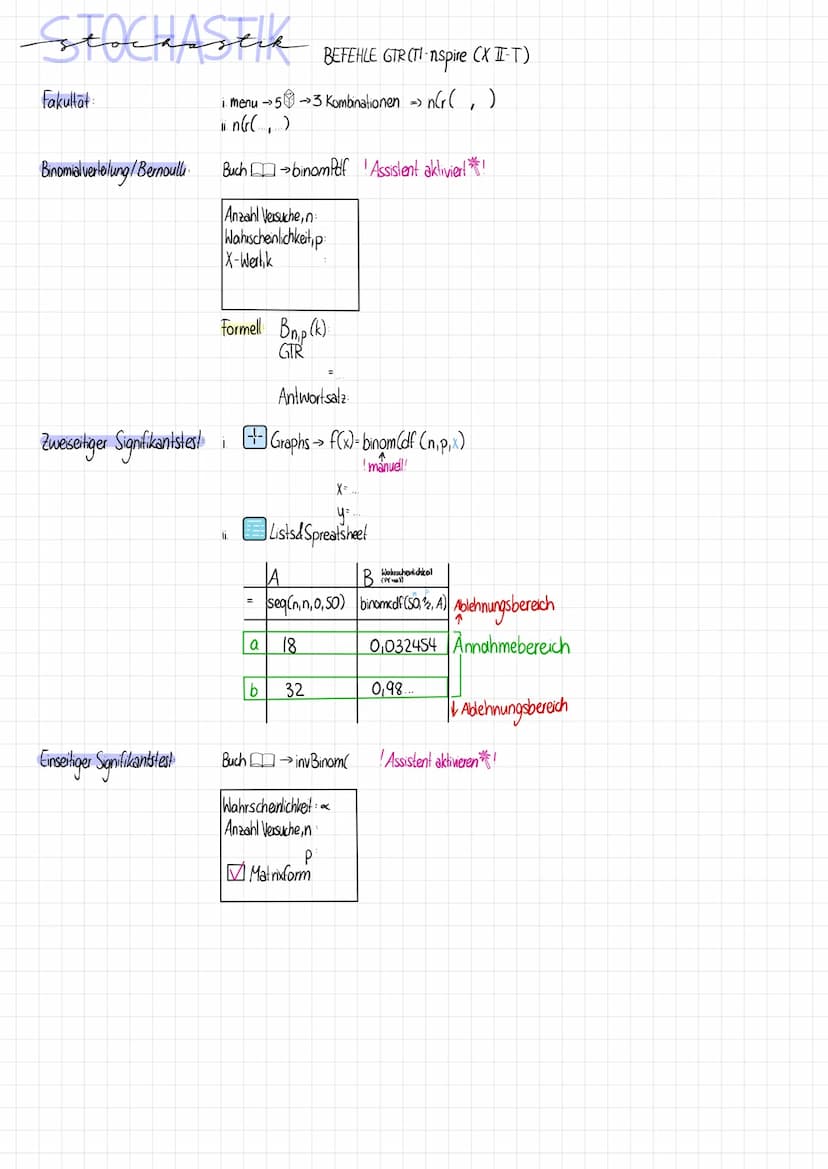 STOCHASTIK
stochastik
BEFEHLE GTR (TI-nspire CX II-T)
Fakultät:
i menu → 5 → 3 Kombinationen => nCr( , )
ii nCr(..., ...)
Binomialverteilung/Bernoulli:
Buch → binomPdf ! Assistent aktiviert * !
Anzahl Versuche, n:
Wahrscheinlichkeit, p:
X-Wert, k :
Formell: Bn,p (k)
GTR
= ...
Antwortsatz.
Zweiseitiger Signifikantstest i. Graphs → f(x) = binomCdf (n,p,x)
! manuell!
x= ...
y= ...
ii. Lists&Spreatsheet
A B Wahrscheinlichkeit
= seq(n,n,0,50) binomcdf(50,½,A) Ablehnungsbereich
a 18 0,032454 Annahmebereich
b 32 0,98...
↓ Ablehnungsbereich
Einseitiger Signifikantstest
Buch → invBinom( ! Assistent aktivieren * !
Wahrscheinlichkeit: ∝
Anzahl Versuche, n :
p
Matrixform